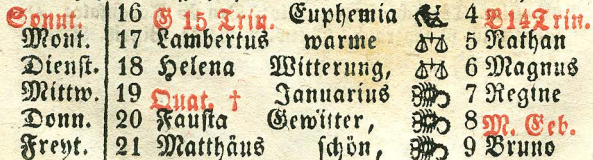 Sonnt. 16 G 15 Trin. Euphemia 4 B14Trin.
Mont. 17 Lambertus warme 5 Nathan
Dienst. 18 Helena Witterung, 6 Magnus
Mittw. 19 Quat. † Januarius 7 Regine
Donn. 20 Fausta Gewitter, 8 M. Geb.
Freyt. 21 Matthäus schön, 9 Bruno